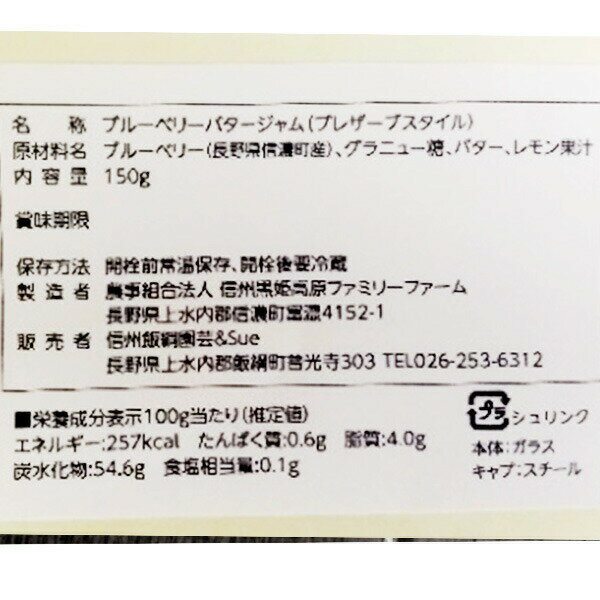 名称 ブルーベリーバタージャム(プレザーブスタイル)
原材料名 ブルーベリー(長野県信濃町産)、グラニュー糖、バター、レモン果汁
内容量 150g
賞味期限
保存方法 開栓前常温保存、開栓後要冷蔵
製造者 農事組合法人 信州黒姫高原ファミリーファーム
長野県上水内郡信濃町富濃4152-1
販売者 信州飯綱園芸&Sue
長野県上水内郡飯綱町普光寺303 TEL026-253-6312
■栄養成分表示100g当たり(推定値)
エネルギー:257kcal たんぱく質:0.6g 脂質:4.0g
炭水化物:54.6g 食塩相当量:0.1g
プラ シュリンク
本体:ガラス
キャップ:スチール